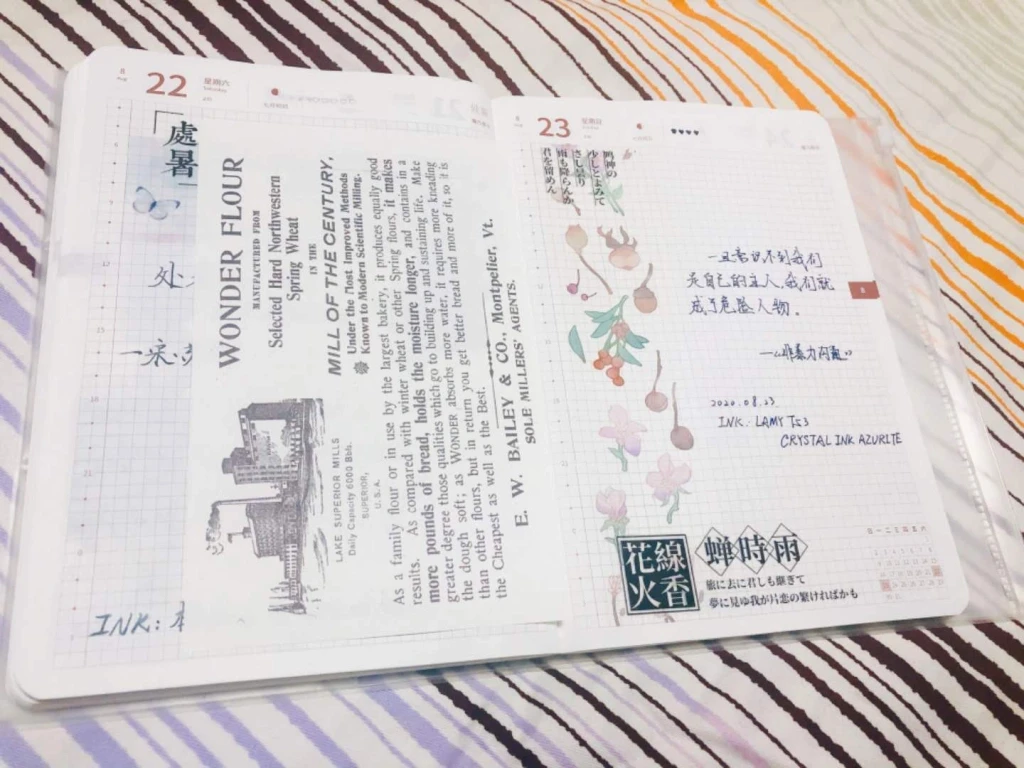 8
Aug
22
星期六
Saturday
「處暑」
处
一来
INK:
WONDER FLOUR
MANUFACTURED FROM
Selected Hard Northwestern
Spring Wheat
IN THE
MILL OF THE CENTURY,
Under the Most Improved Methods
Known to Modern Scientific Milling.
LAKE SUPERIOR MILLS
Daily Capacity 6000 Bbls.
SUPERIOR,
U. S. A.
As a family flour or in use by the largest bakery, it produces equally good
results. As compared with winter wheat or other Spring flours, it makes
more pounds of bread, holds the moisture longer, and contains in a
greater degree those qualities which go to building up and sustaining life. Make
the dough soft; as WONDER absorbs more water, it requires more kneading
than other flours, but in return you get better bread and more of it, so it is
the Cheapest as well as the Best.
E. W. BAILEY & CO., Montpelier, Vt.
SOLE MILLERS' AGENTS.
8
23
星期日
鳴神の
少しとよみて
さし曇り
雨も降らんか
君を留めん
一旦意识不到我们
是自己的主人,我们就
成了危险人物。
——《非暴力沟通》
2020.08.23
INK: LAMY T53
CRYSTAL INK AZURITE
8
線香花火
蝉時雨
旅に去にし君しも継ぎて
夢に見ゆ我が片恋の繁ければかも